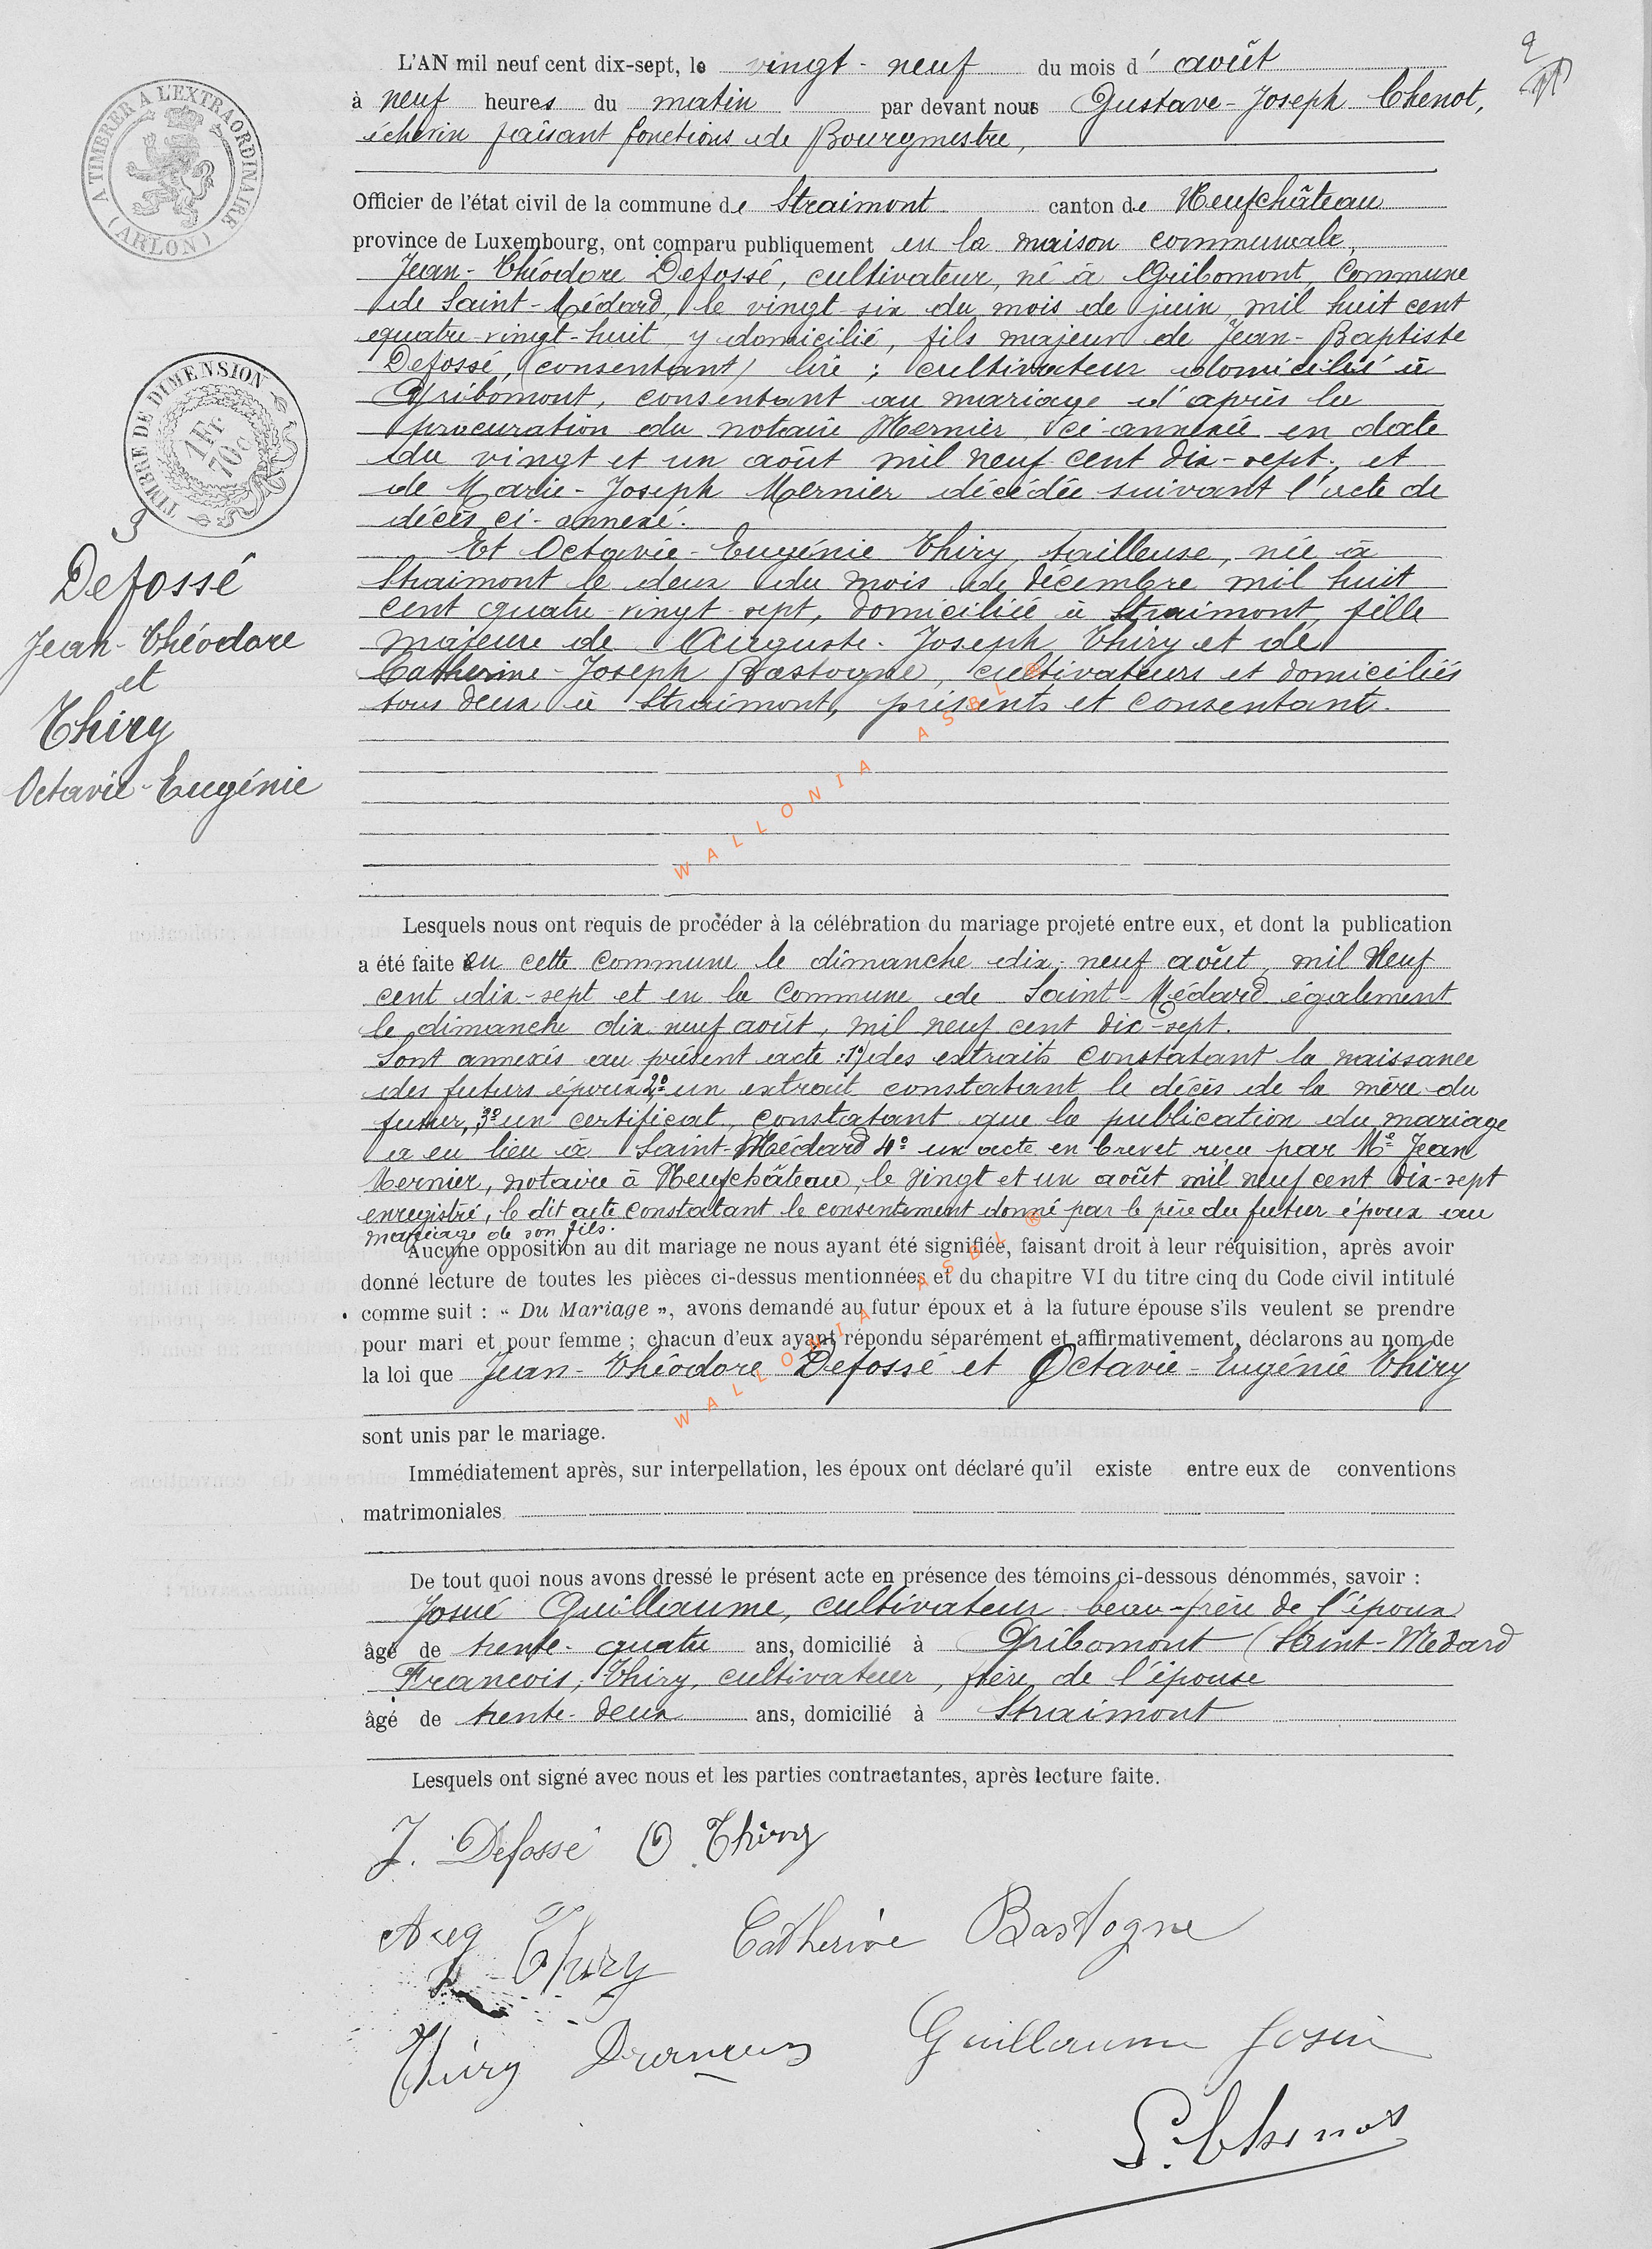 2
L'AN mil neuf cent dix-sept, le vingt-neuf du mois d' août
à neuf heures du matin par devant nous Gustave-Joseph Chenot,
échevin faisant fonctions de Bourgmestre,
A TIMBRER A L'EXTRAORDINAIRE
(ARLON)
Officier de l'état civil de la commune de Straimont canton de Neufchâteau
province de Luxembourg, ont comparu publiquement en la maison communale,
Jean-Théodore Defossé, cultivateur, né à Gribomont, Commune
de Saint-Médard, le vingt-six du mois de juin mil huit cent
quatre-vingt-huit y domicilié, fils majeur de Jean-Baptiste
Defossé, (consentant) lire : cultivateur domicilié à
Gribomont, consentant au mariage d'après la
procuration du notaire Mernier, ci-annexée en date
du vingt et un août mil neuf cent dix-sept, et
de Marie-Joseph Mernier décédée suivant l'acte de
décès ci-annexé.
TIMBRE DE DIMENSION
1 Fr
70c
3
Defossé
Jean-Théodore
et
Thiry
Octavie-Eugénie
Et Octavie-Eugénie Thiry, tailleuse, née à
Straimont le deux du mois de décembre mil huit
cent quatre-vingt-sept, domiciliée à Straimont, fille
majeure de Auguste-Joseph Thiry et de
Catherine-Joseph Bastogne, cultivateurs et domiciliés
tous deux à Straimont, présents et consentants.
WALLONIA ASBL ®
Lesquels nous ont requis de procéder à la célébration du mariage projeté entre eux, et dont la publication
a été faite en cette commune le dimanche dix-neuf août, mil neuf
cent dix-sept et en la Commune de Saint-Médard également
le dimanche dix neuf août, mil neuf cent dix-sept.
Sont annexés au présent acte : 1°) des extraits constatant la naissance
des futurs époux 2° un extrait constatant le décès de la mère du
futur, 3° un certificat, constatant que la publication du mariage
a eu lieu à Saint-Médard 4° un acte en brevet reçu par Me Jean
Mernier, notaire à Neufchâteau, le vingt et un août mil neuf cent dix-sept
enregistré, le dit acte constatant le consentement donné par le père du futur époux au
mariage de son fils.
Aucune opposition au dit mariage ne nous ayant été signifiée, faisant droit à leur réquisition, après avoir
donné lecture de toutes les pièces ci-dessus mentionnées et du chapitre VI du titre cinq du Code civil intitulé
comme suit : « Du Mariage », avons demandé au futur époux et à la future épouse s'ils veulent se prendre
pour mari et pour femme ; chacun d'eux ayant répondu séparément et affirmativement, déclarons au nom de
la loi que Jean-Théodore Defossé et Octavie-Eugénie Thiry
WALLONIA ASBL ®
sont unis par le mariage.
Immédiatement après, sur interpellation, les époux ont déclaré qu'il existe entre eux de conventions
matrimoniales
De tout quoi nous avons dressé le présent acte en présence des témoins ci-dessous dénommés, savoir :
Josué Guillaume, cultivateur beau-frère de l'époux
âgé de trente-quatre ans, domicilié à Gribomont (Saint-Médard
François, Thiry, cultivateur, frère de l'épouse
âgé de trente-deux ans, domicilié à Straimont
Lesquels ont signé avec nous et les parties contractantes, après lecture faite.
J. Defossé O Thiry
Aug Thiry Catherine Bastogne
Thiry François Guillaume Josué
G. Chenot